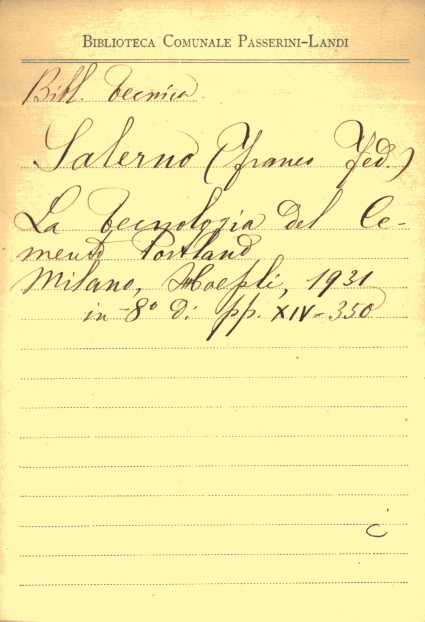 BIBLIOTECA COMUNALE PASSERINI-LANDI
Bibl. Tecnica
Salerno (Franc Fed.)
La tecnologia del Ce-
mento Portland
Milano, Hoepli, 1931
in-8° di pp. XIV-350
c